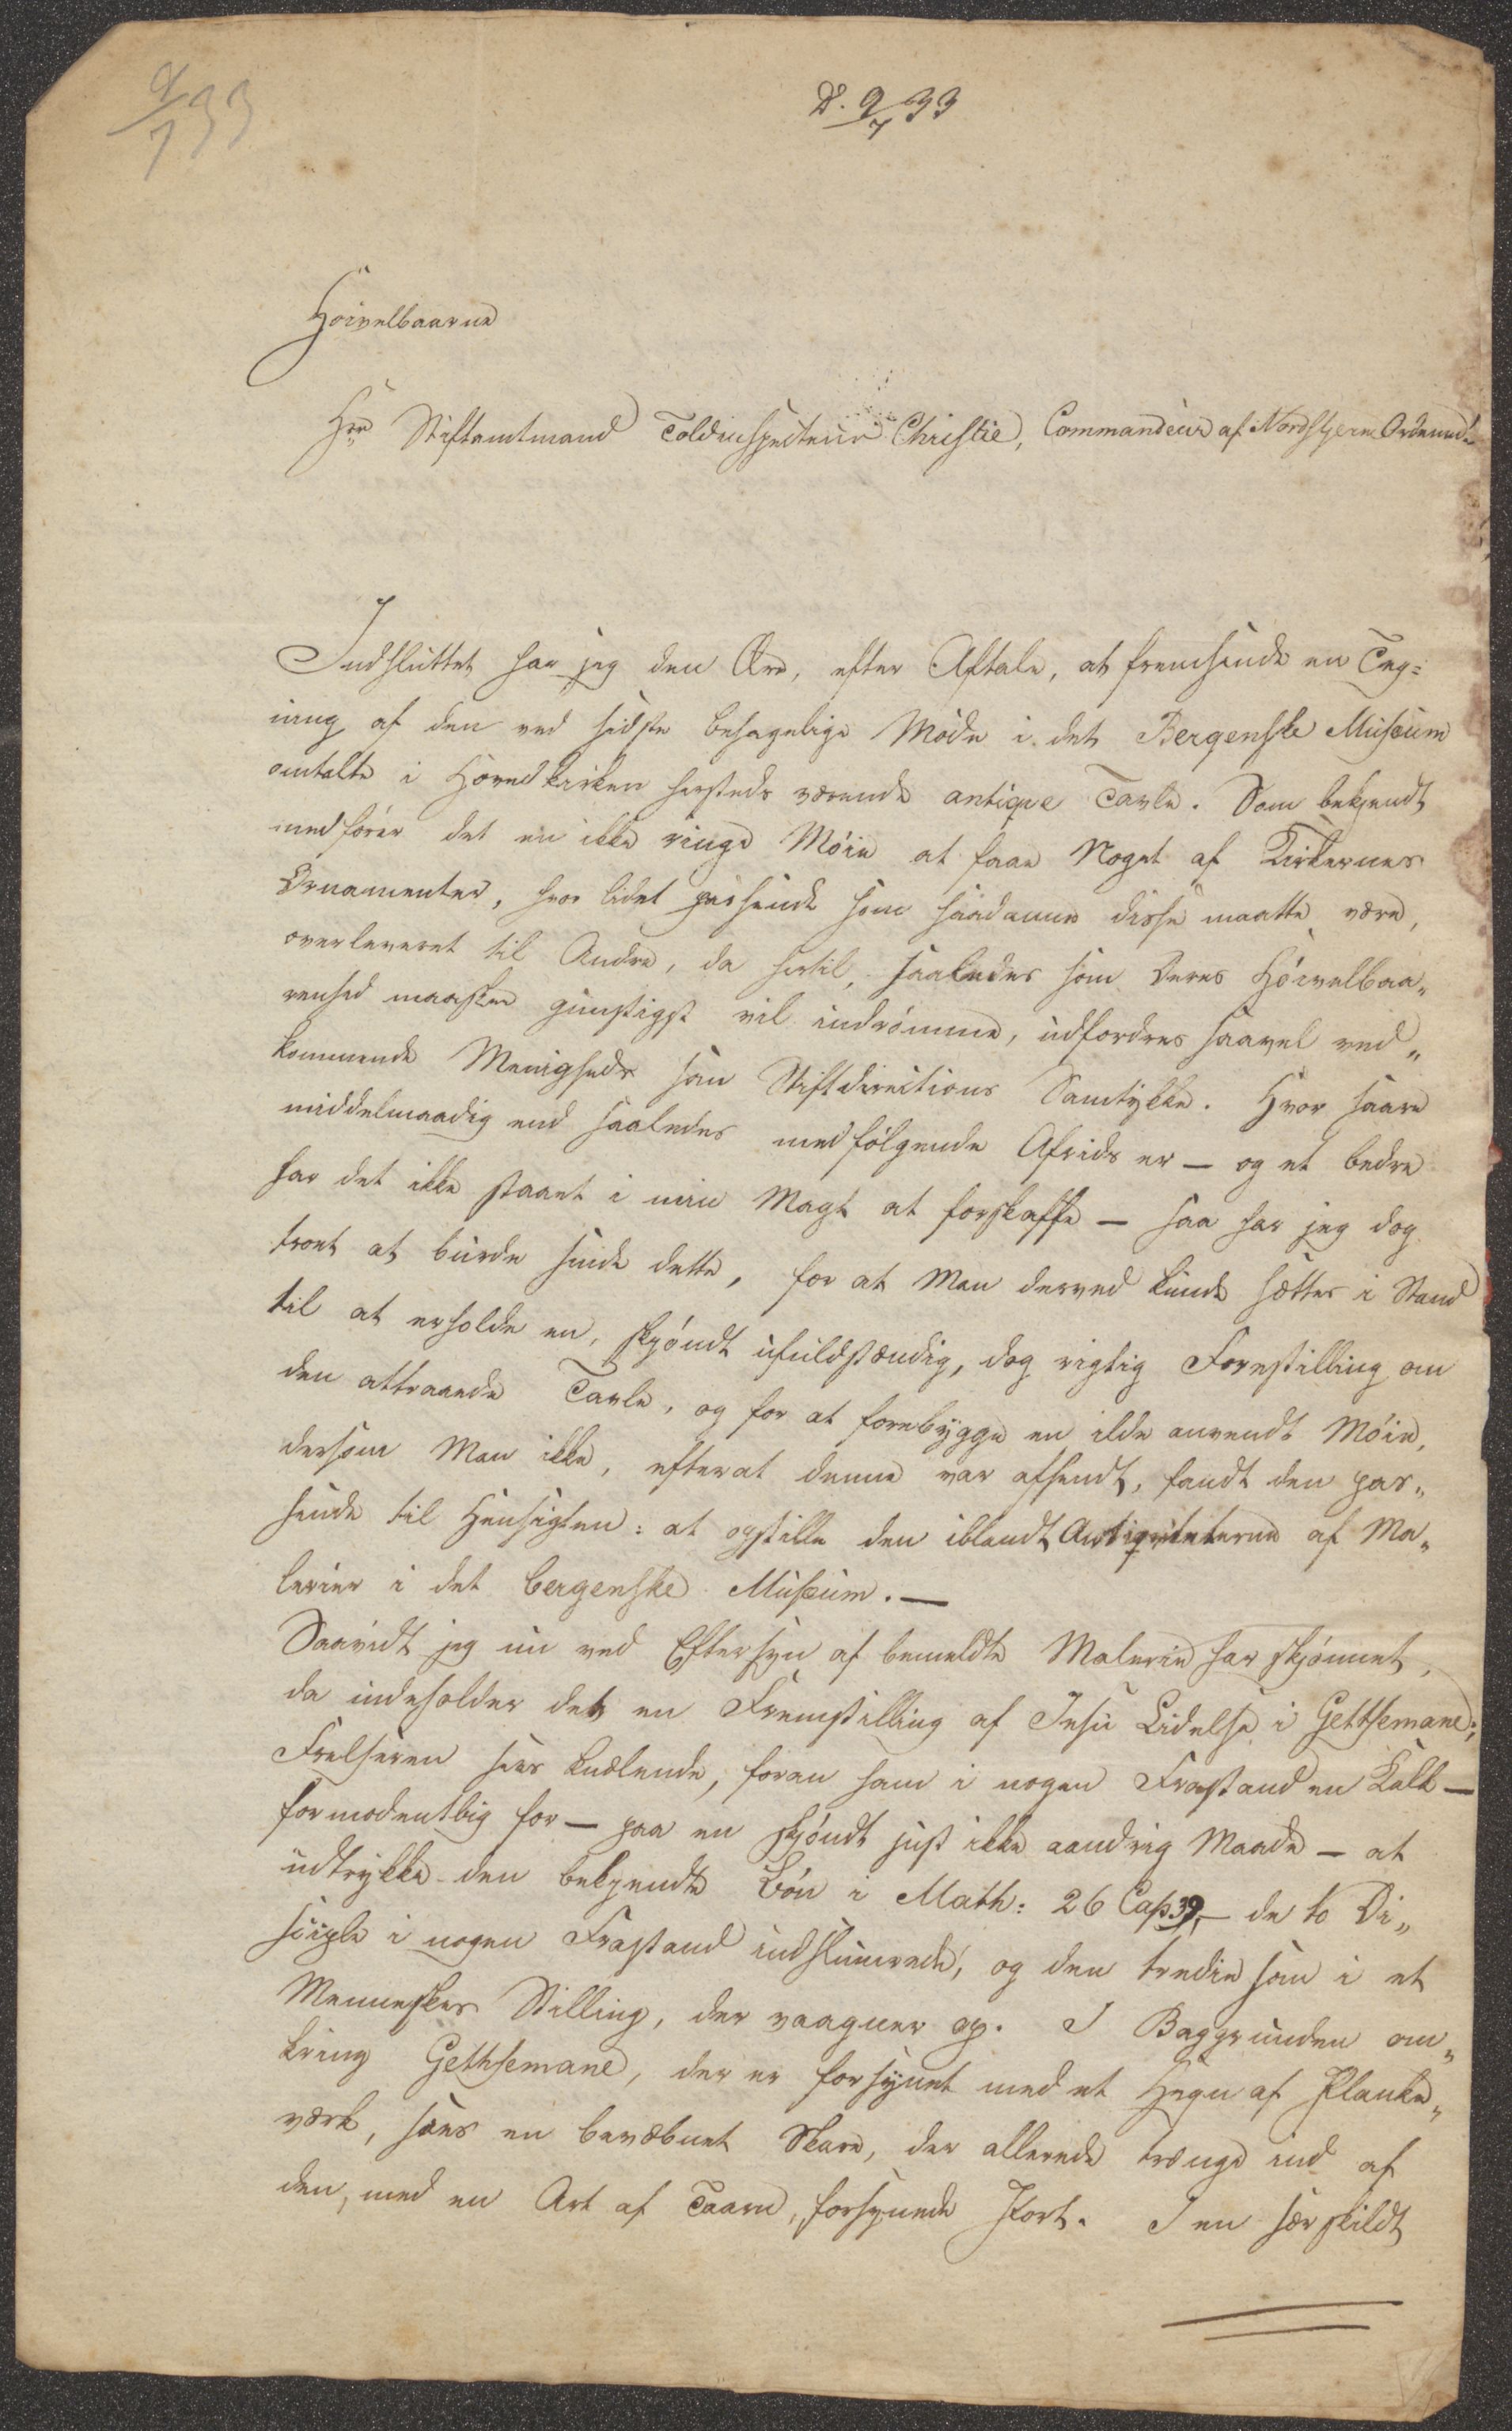 9/7 33
D. 9/7 33
Høivelbaarne
Hrr Stiftamtmand Toldinspecteur Christie, Commandeur af Nordstjerne Ordenen
Indsluttet har jeg den Ære, efter Aftale, at fremsende en Teg=
ning af den ved sidste behagelige Møde i det Bergenske Museum
omtalte i Hovedkirken hersteds værende antique Tavle. Som bekjendt
medfører det en ikke ringe Møie at faae Noget af Kirkernes
Ornamenter, hvor lidet passende som saadanne disse maatte være,
overleveret til Andre, da hertil, saaledes som Deres Høivelbaa„
renhed maaskee gunstigst vil indrømme, udfordres saavel ved„
kommende Menigheds som Stiftdirections Samtykke. Hvor saare
middelmaadig end saaledes medfølgende Afrids er — og et bedre
har det ikke staaet i min Magt at forskaffe — saa har jeg dog
troet at burde sende dette, for at Man derved kunde sættes i Stand
til at erholde en, skjøndt ufuldstændig, dog rigtig Forestilling om
den attraaede Tavle, og for at forebygge en ilde anvendt Møie,
dersom Man ikke, efterat denne var afsendt, fandt den pas„
sende til Hensigten: at opstille den iblandt Antiquiteterne af Ma„
lerier i det bergenske Museum. —
Saavidt jeg nu ved Eftersyn af bemeldte Malerie har skjønnet,
da indeholder det en Fremstilling af Jesu Lidelse i Gettsemane;
Frelseren sees knælende, foran ham i nogen Frastand en Kalk —
formodentlig for — paa en skjøndt just ikke aandrig Maade — at
udtrykke den bekjendte Bøn i Math: 26 Cap 39, — de to Di„
sciple i nogen Frastand indslumrede, og den tredie som i et
Menneskes Stilling, der vaagner op. I Baggrunden om„
kring Gethsemane, der er forsynet med et Hegn af Planke„
værk, sees en bevæbnet Skare, der allerede trænge ind af
den, med en Art af Taarn, forsynede Port. I en særskildt